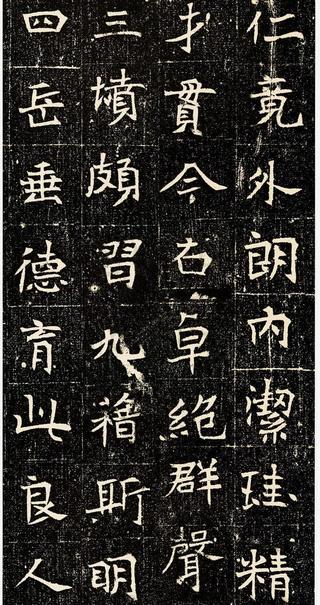 仁竟外朗內潔珪精
才貫今右卓絕群聲
三墳頗習九藉斯明
四岳垂德育此良人